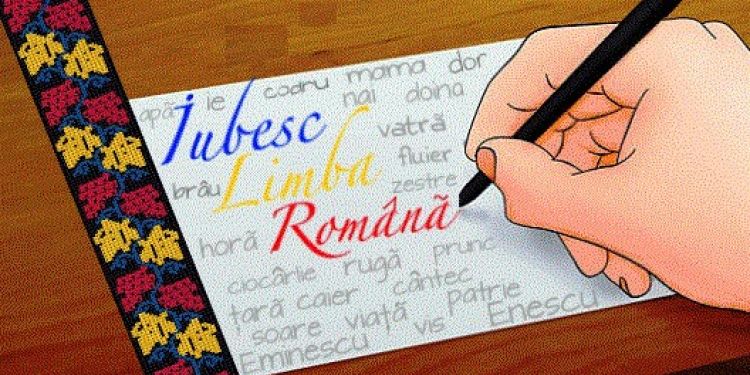 apă le codru mama dor
nai doina
Iubesc
vatră
Limba
fluier
brâu
zestre
Română
horă
ciocârlie rugă prunc
țară caier cântec
soare viață vis patrie
Eminescu Enescu